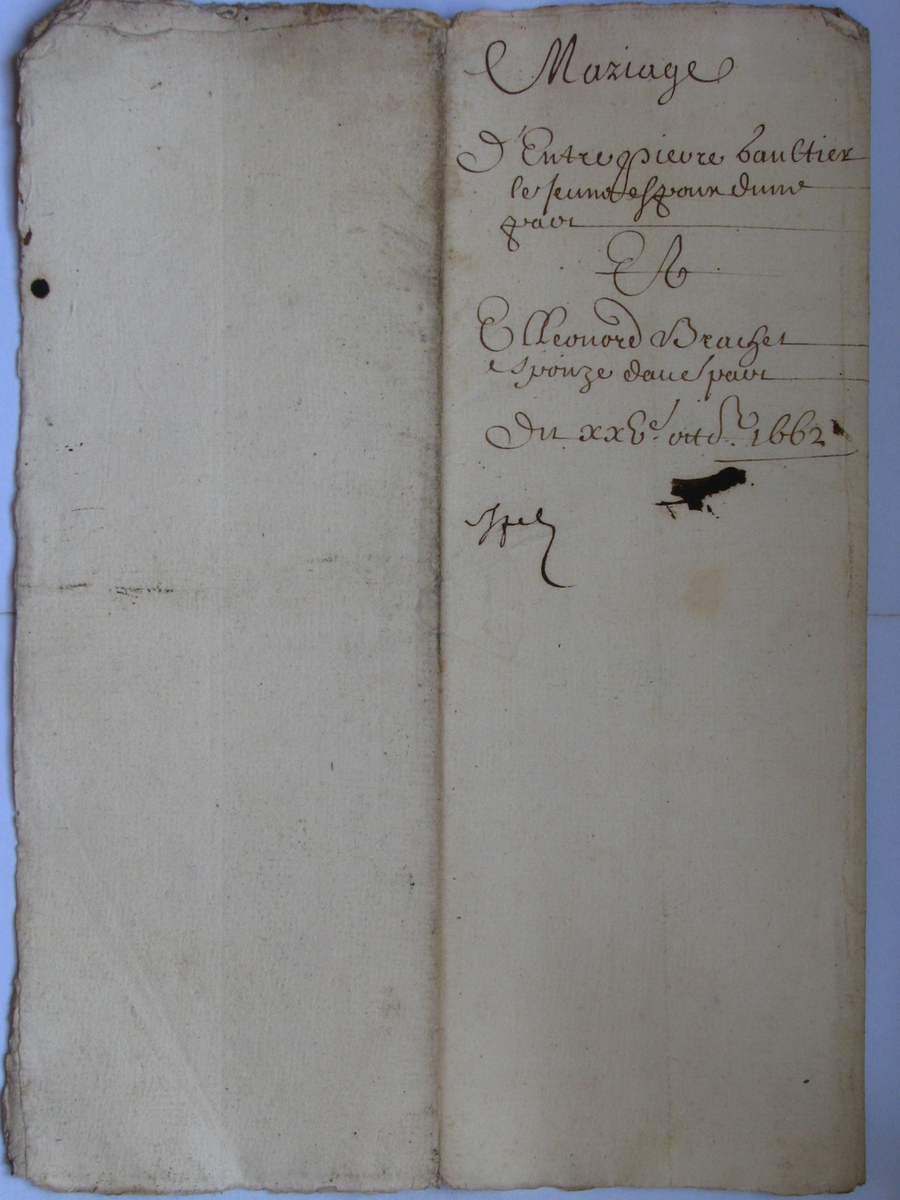 Mariage
D'Entre pierre baultier
le jeune espoux dune
part
Et
Elleonord Brachet
espouze dau[tr]e part
Du xxve octb. 1662